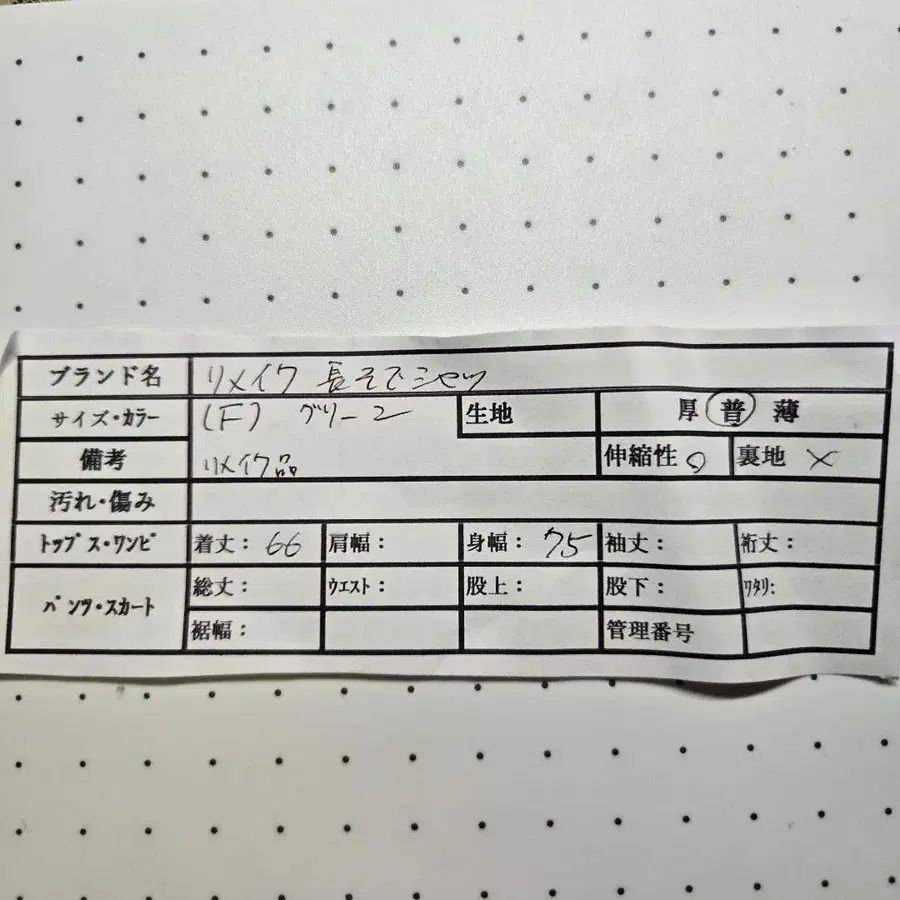 ブランド名 リメイク 長そでシャツ
サイズ・カラー (F) グリーン 生地 厚 普 薄
備考 リメイク品 伸縮性 ○ 裏地 ×
汚れ・傷み
トップス・ワンピ 着丈: 66 肩幅: 身幅: 75 袖丈: 裄丈:
パンツ・スカート 総丈: ウエスト: 股上: 股下: ワタリ:
裾幅: 管理番号